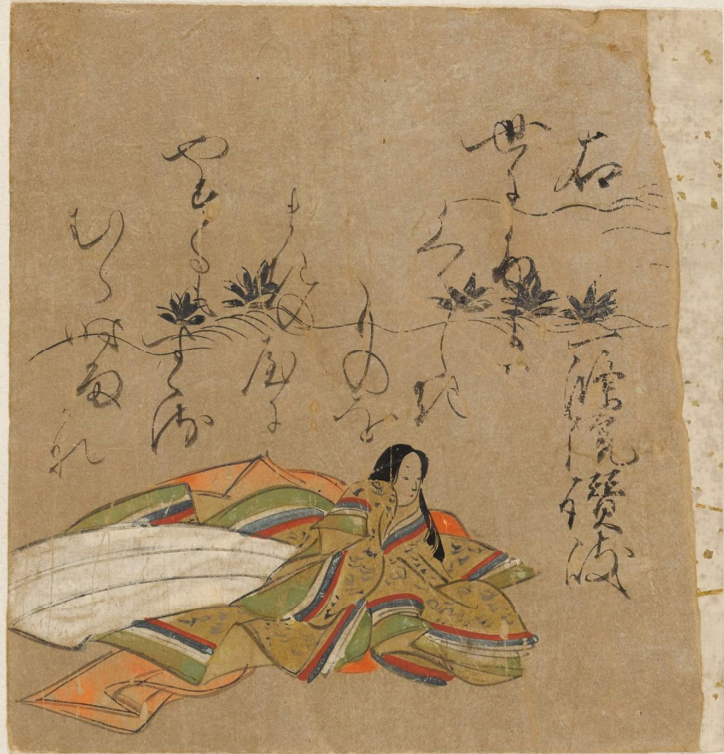 右
二條院讃岐
世にふるは
くるしき
ものを
まきの屋に
やすくもすくる
時雨